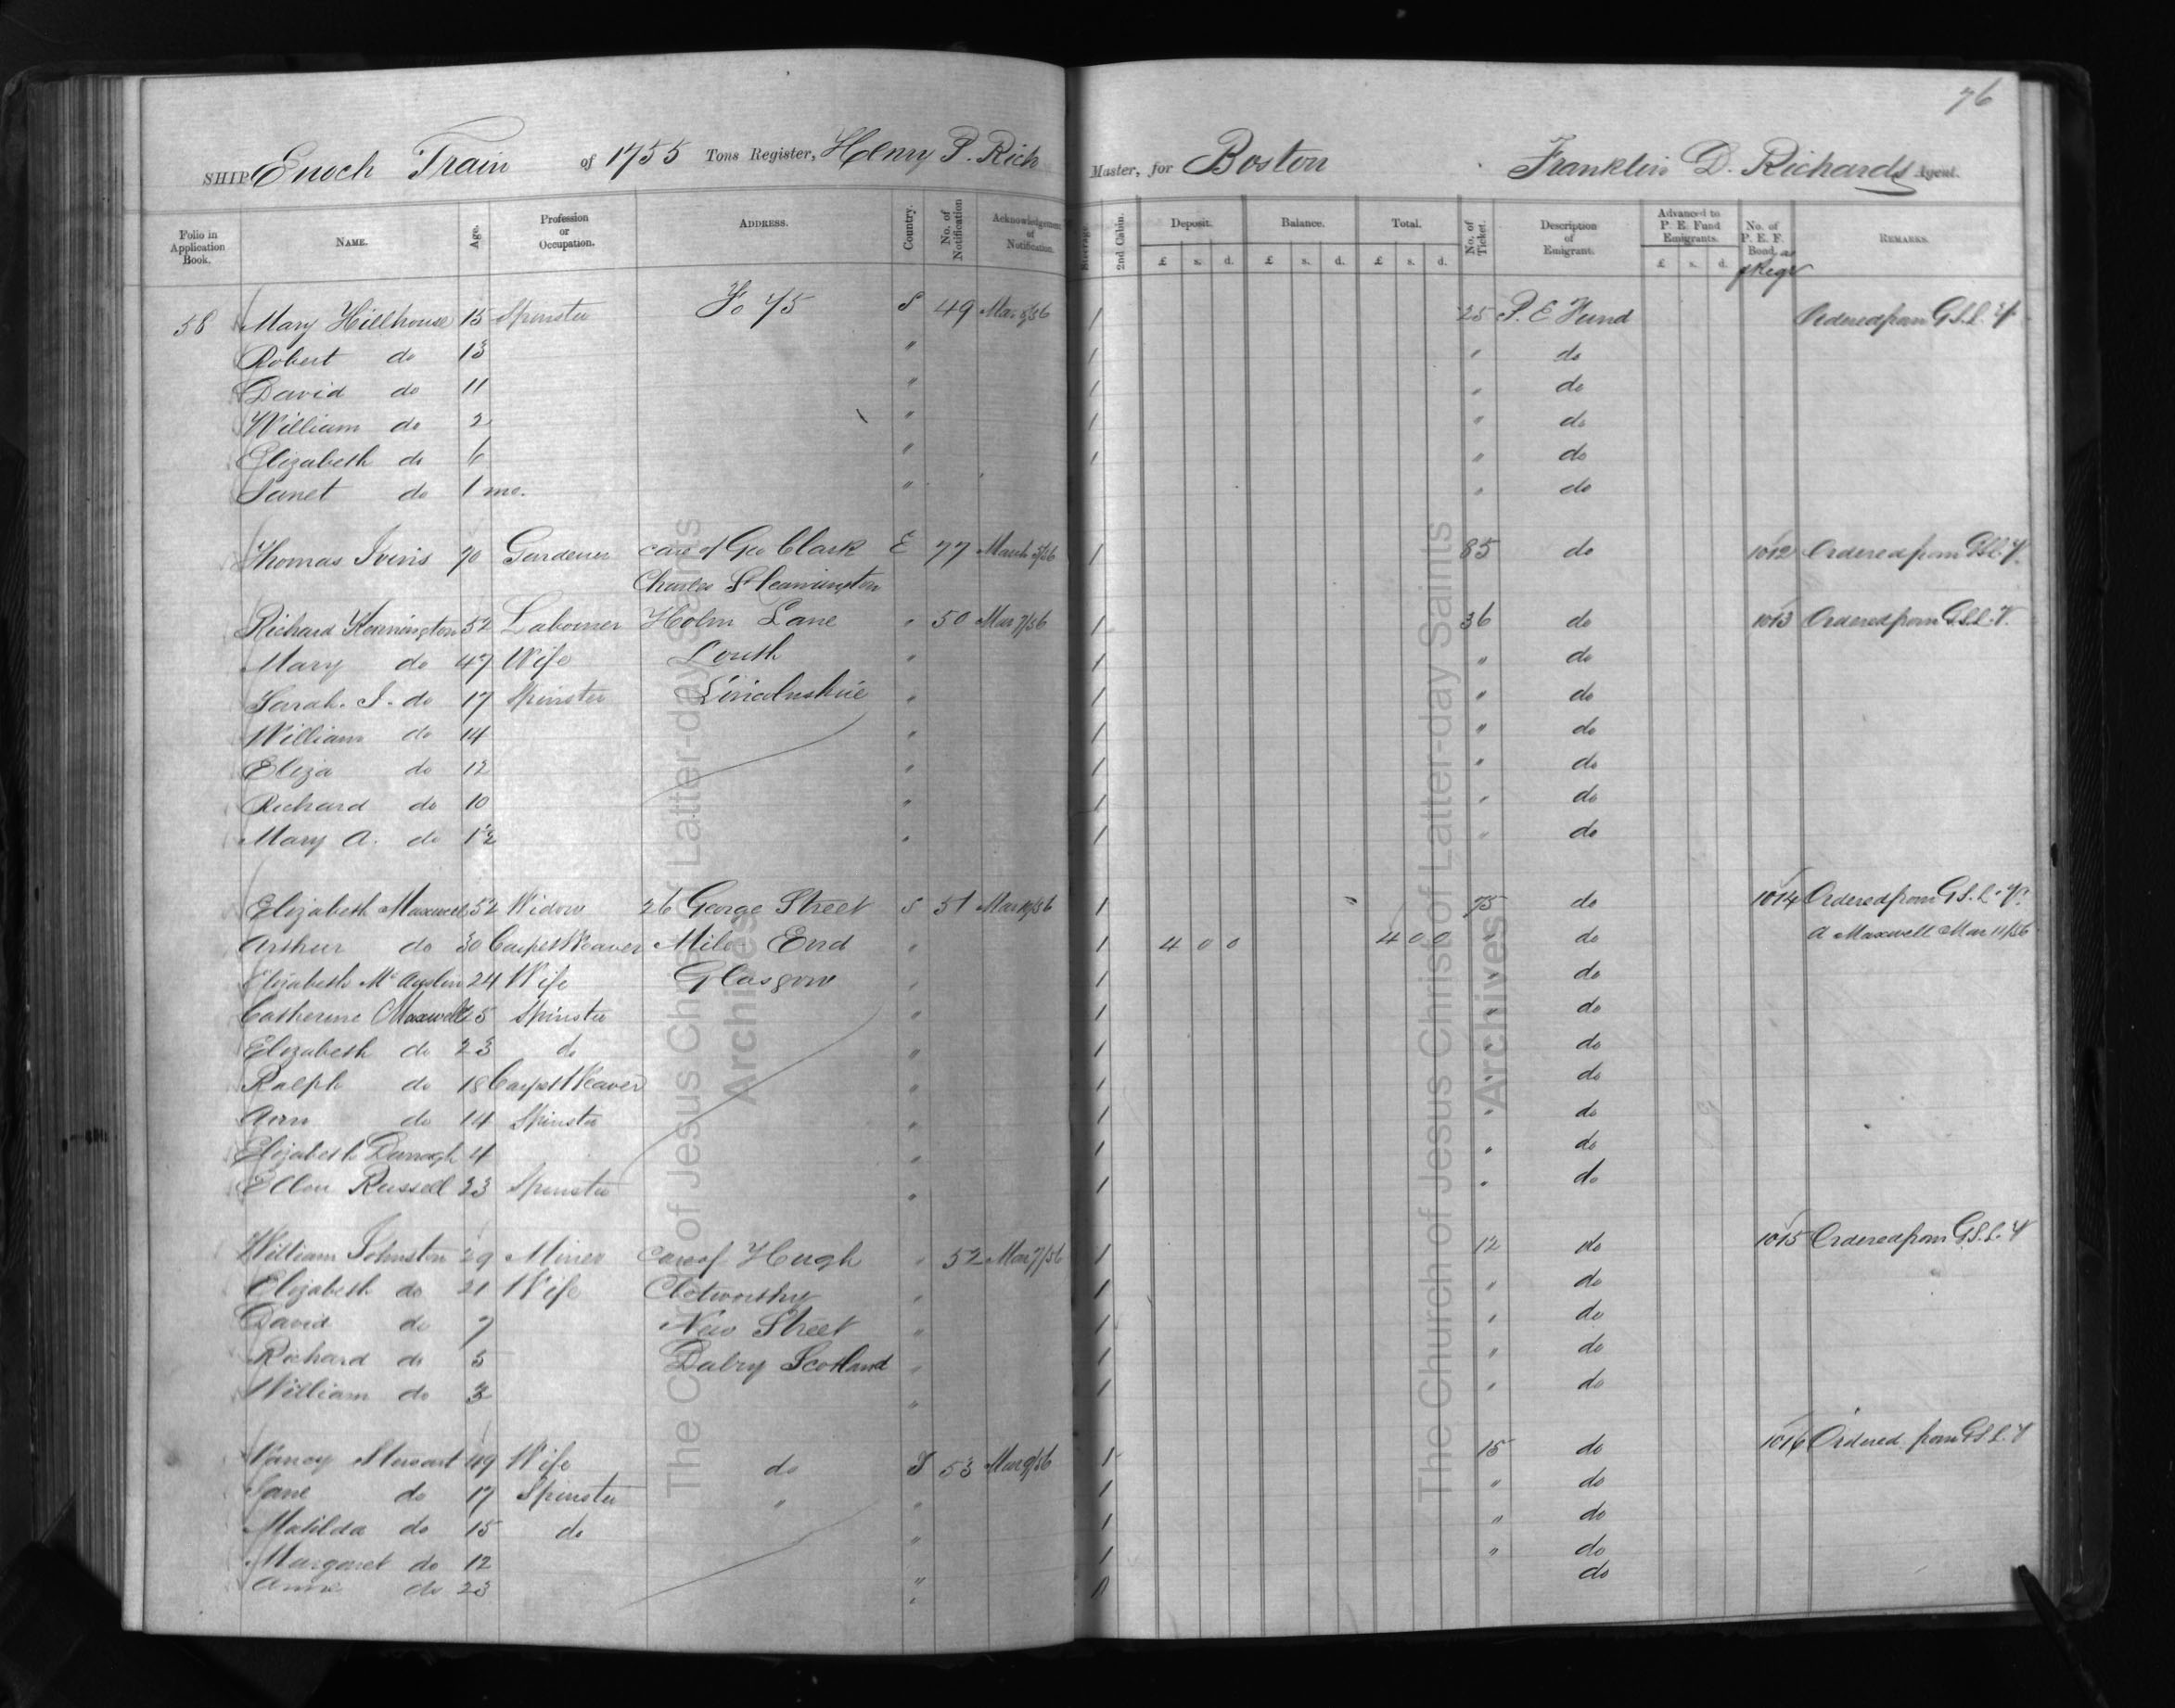 76
SHIP Enoch Train of 1755 Tons Register, Henry P. Rich Master, for Boston Franklin D. Richards Agent.
Folio in Application Book. NAME. Age. Profession or Occupation. ADDRESS. Country. No. of Notification Acknowledgement of Notification. Steerage. 2nd Cabin. Deposit. £ s. d. Balance. £ s. d. Total. £ s. d. No. of Ticket. Description of Emigrant. Advanced to P. E. Fund Emigrants. £ s. d. No. of P. E. F. Bond, as REMARKS.
58 Mary Hillhouse 15 Spinster Fo 45 S 49 Mar 1 25 P. E Fund Ordered from G.S.L. Y.
Robert do 13 " 1 " do
David do 11 " 1 " do
William do 2 " 1 " do
Elizabeth do 6 " 1 " do
Janet do 1 mo. " " do
Thomas Ivins 70 Gardener care of Geo Clark E 77 March 1 85 do 1012 Ordered from GSL. Y.
Charles St Leamington
Richard Kennington 52 Labourer Holm Lane " 50 Mar 7/56 1 36 do 1013 Ordered from G.S.L. V.
Mary do 47 Wife Louth " 1 " do
Sarah. J. do 17 Spinster Lincolnshire " 1 " do
William do 14 " 1 " do
Eliza do 12 " 1 " do
Richard do 10 " 1 " do
Mary A. do 1½ " 1 " do
Elizabeth Maxwell 52 Widow 26 George Street S 51 Mar 1 75 do 1014 Ordered from G S. L. Y.
Arthur do 30 Carpet Weaver Mile End " 1 4 0 0 4 0 0 " do A Maxwell Mar 11/56
Elizabeth 24 Wife Glasgow " 1 " do
Catherine Maxwell 25 Spinster " 1 " do
Elizabeth do 23 do " 1 " do
Ralph do 18 Carpet Weaver " 1 " do
Ann do 14 Spinster " 1 " do
Elizabeth Darragh 4 " 1 " do
Ellen Russell 23 Spinster " 1 " do
William Johnston 29 Miner Care of Hugh " 52 Mar 7/56 1 12 do 1015 Ordered from G.S.L. Y
Elizabeth do 21 Wife Clotworthy " 1 " do
David do 7 New Street " 1 " do
Richard do 5 Dalry Scotland " 1 " do
William do 3 " 1 " do
Nancy Stewart 49 Wife do I 53 Mar 9/56 1 15 do 1016 Ordered from GSL. Y
Jane do 17 Spinster " " 1 " do
Matilda do 15 do " 1 " do
Margaret do 12 " 1 " do
Anne do 23 " 1 do
The Church of Jesus Christ of Latter-day Saints
Archives
The Church of Jesus Christ of Latter-day Saints
Archives